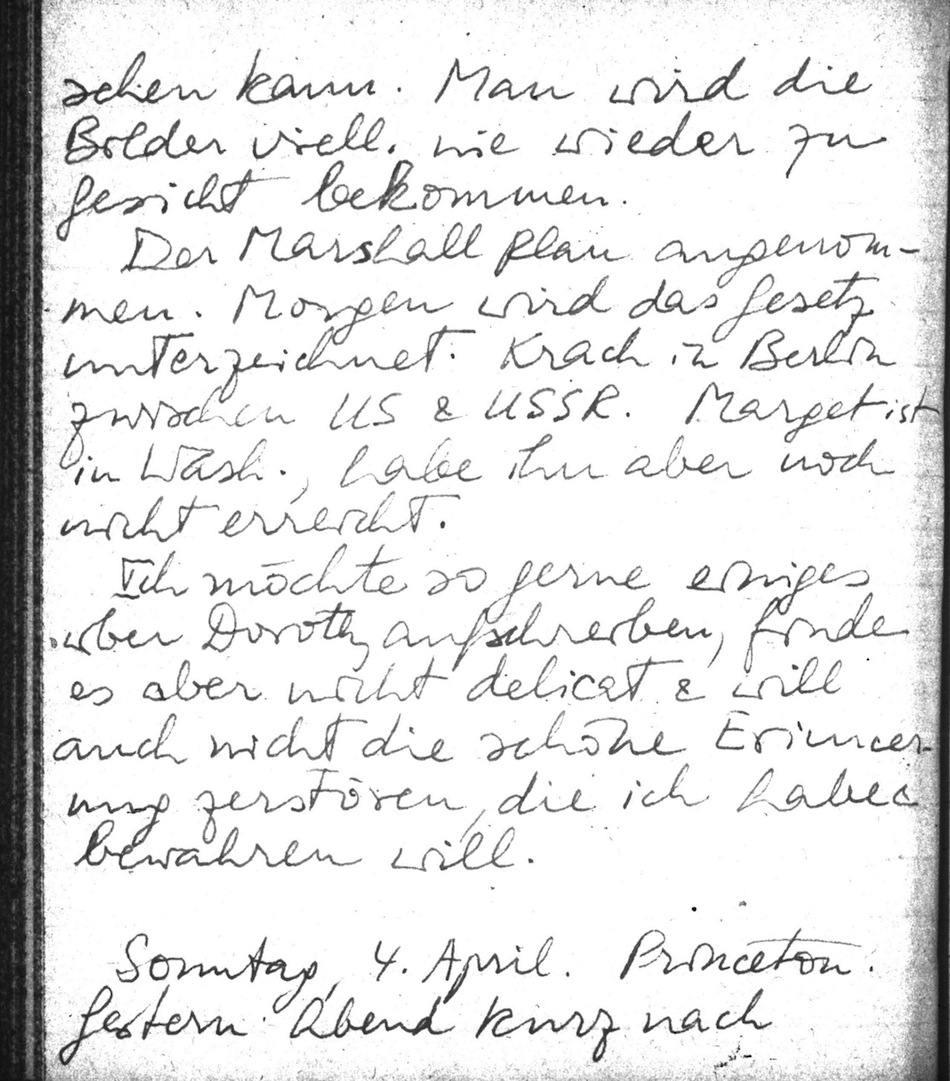 sehen kann. Man wird die
Bilder viell. nie wieder zu
Gesicht bekommen.
Der Marshall Plan angenom-
men. Morgen wird das Gesetz
unterzeichnet. Krach in Berlin
zwischen US & USSR. Marget ist
in Wash., habe ihn aber noch
nicht erreicht.
Ich möchte so gerne einiges
über Dorothy aufschreiben, finde
es aber nicht delicat & will
auch nicht die schöne Erinner-
ung zerstören, die ich habe &
bewahren will.
Sonntag, 4. April. Princeton.
Gestern Abend kurz nach